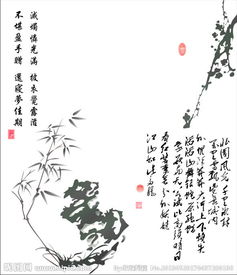 滅燭憐光滿 披衣覺露滋
不堪盈手贈 還寢夢佳期
北國風光千里冰封
萬里雪飄望長城內
外惟餘莽莽大河上下頓失
滔滔山舞銀蛇原馳蠟
象欲與天公試比高須晴日
看紅裝素裹分外妖嬈
江山如此多嬌